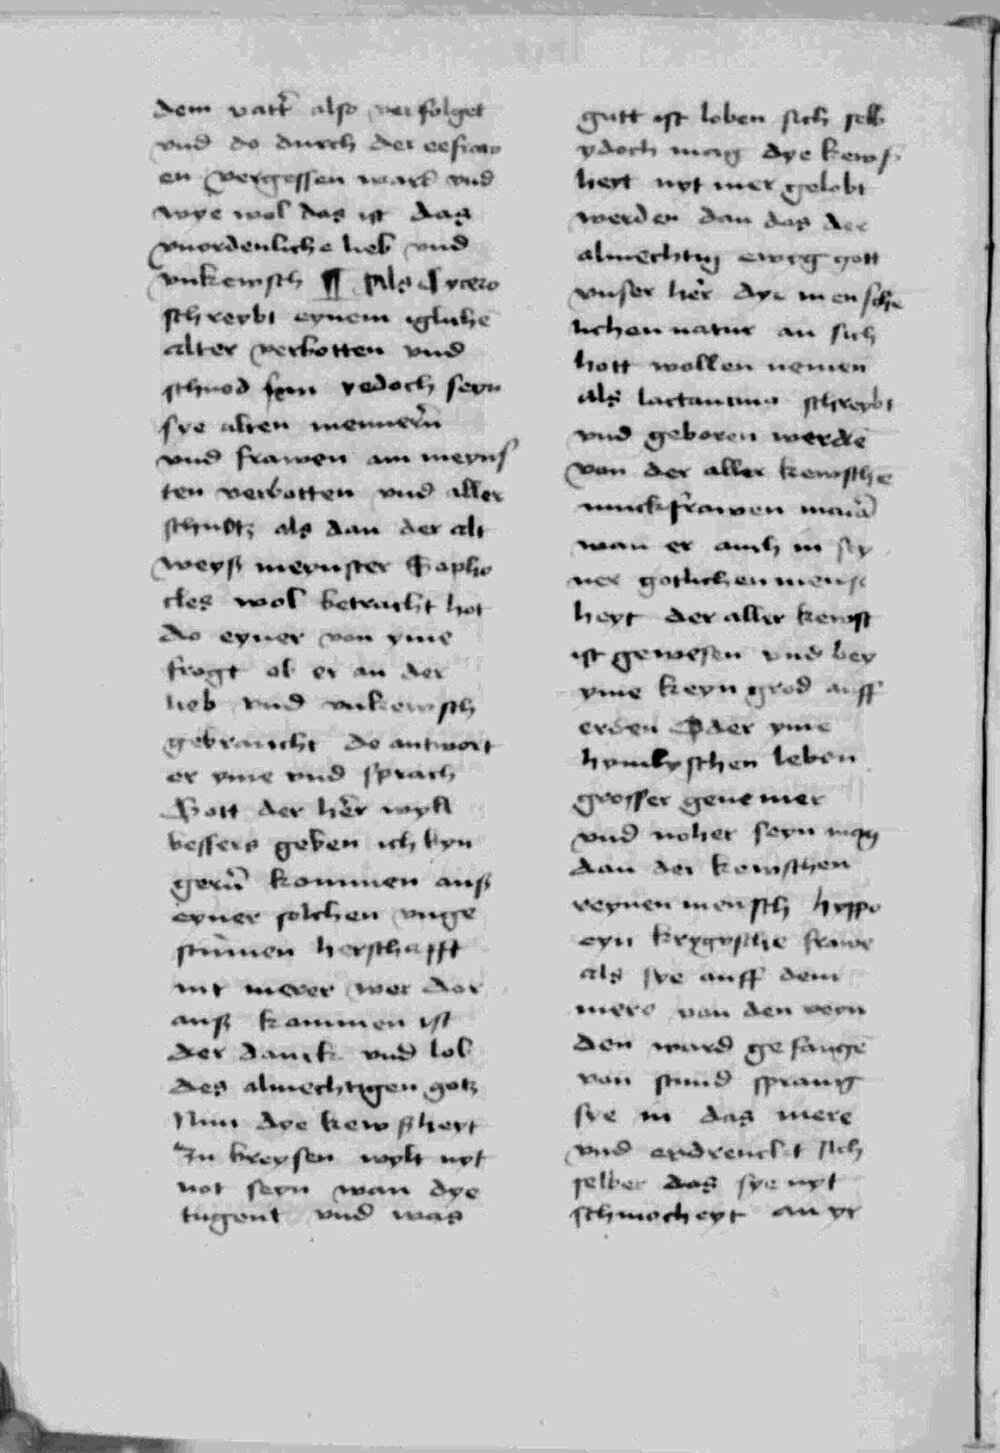 dem vatter also verfolget
vnd do durch der eefraw
en vergessen ward vnd
wye wol das ist das
vnordenliche lieb vnd
vnkewsch ¶ Als Cycero
schreybt eynem igliche
alter verbotten vnd
schnod sein yedoch seyn
sye alten mennern
vnd frawen am meyns
ten verbotten vnd aller
schnodst als dan der alt
weyß meynster Sopho
cles wol betracht hot
do eyner von yme
frogt ob er an der
lieb vnd vnkewsch
gebraucht do antwort
er yme vnd sprach
Gott der her wyll
bessers geben ich byn
gern kommen auß
eyner solchen vnge
stumen herschafft
nit merer wer dor
auß kommen ist
der danck vnd lob
des almechtigen gotz
Nun dye kewßheyt
zu breysen wylt nyt
not seyn wan dye
tugent vnd was
gutt ist loben sich selb
ydoch mag dye kewß
heyt nyt mer gelobt
werden dan das der
almechtig ewig gott
vnser her dye mensche
lichen natur an sich
hott wollen nemen
als lactancius schreybt
vnd geboren werde
von der aller kewsche
junckfrawen maria
wan er auch in sey
ner gotlichen mens
heyt der aller kewst
ist gewesen vnd bey
yme keyn grod auff
erden Oder yme
hymlyschen leben
grosser genemer
vnd noher seyn mag
dan der kewschen
reynen mensch hyppo
eyn krygysche frawe
als sye auff dem
mere von den veyn
den ward gefange
von stund sprang
sye in das mere
vnd erdrenckt sich
selber das sye nyt
schmocheyt an yr